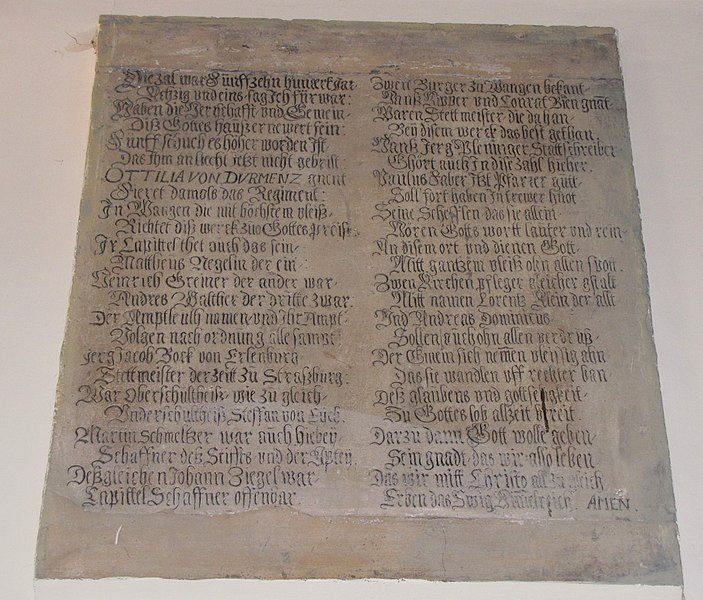 Die zal war Fünffzehn hundert gar
Sechzig und eins sag ich für war:
Haben die Herschafft und Gemein
Diß Gottes hauß ernewert fein:
Fünff schuch es hoher worden ist
Das Ihm an liecht jetzt nicht gebrist:
OTTILIA VON DVRMENZ gnent
Fieret damols das Regiment:
In Wangen die mit höchstem vleiß
Richtet diß werck zuo Gottes preiß
Ir Capittel thet auch das sein
Mattheus Negelin der ein
Heinrich Greiner der ander war
Andres Walther der dritte zwar
Der Amptleuth namen und ihr Ampt
Volgen nach ordnung alle sampt
Jerg Jacob Bock von Erlenburg
Stettmeister der zeitt zu Straßburg:
War Oberschultheiß wie zu gleich
Underschultheiß Steffan von Eych.
Martin Schmeltzer war auch hiebey
Schaffner deß Stiffts und der Aptey
Deßgleichen Johann Ziegel war
Capittel Schaffner offenbar
Zwen Burger zu Wangen bekant
Hanß und Conrat gnant
Waren Stettmeister die da han
Bey disem werck das best gethan
Hanß Jerg Pleninger Stattschreiber
Ghört auch in dise zahl hieher
Paulus Faber itzt Pfarrer gutt
Soll fort haben in trewer huot
Seine Schefflen das sie allein
Hören Gotts wortt lauter und rein
An disem ort und dienen Gott
Mitt gantzem vleiß ohn allen spott
Zwen Kirchen pfleger gleicher gstalt
Mitt namen Lorentz Klein der allt
Und Andreas Dominicus
Sollen auch ohn allen verdruß
Der Gmein sich nemen vleysig ahn
Das sie wandlen uff rechter ban
Deß glaubens und gottseligkeit
Zu Gottes lob allzeit bereit
Darzu dann Gott wolle geben
Sein gnadt das wir also leben
Das wir mitt Christo all zu gleich
Erben das Ewig Himelreich AMEN.